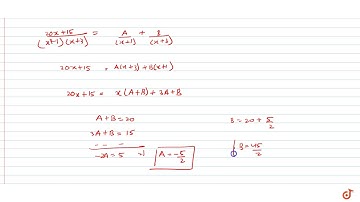 (20x+15)/((x+1)(x+3)) = A/(x+1) + B/(x+3)
20x+15 = A(x+3)+B(x+1)
20x+15 = x(A+B)+3A+B
A+B=20
3A+B=15
- - -
-2A=5 ⇒ A=-5/2
B=20+5/2
B=45/2